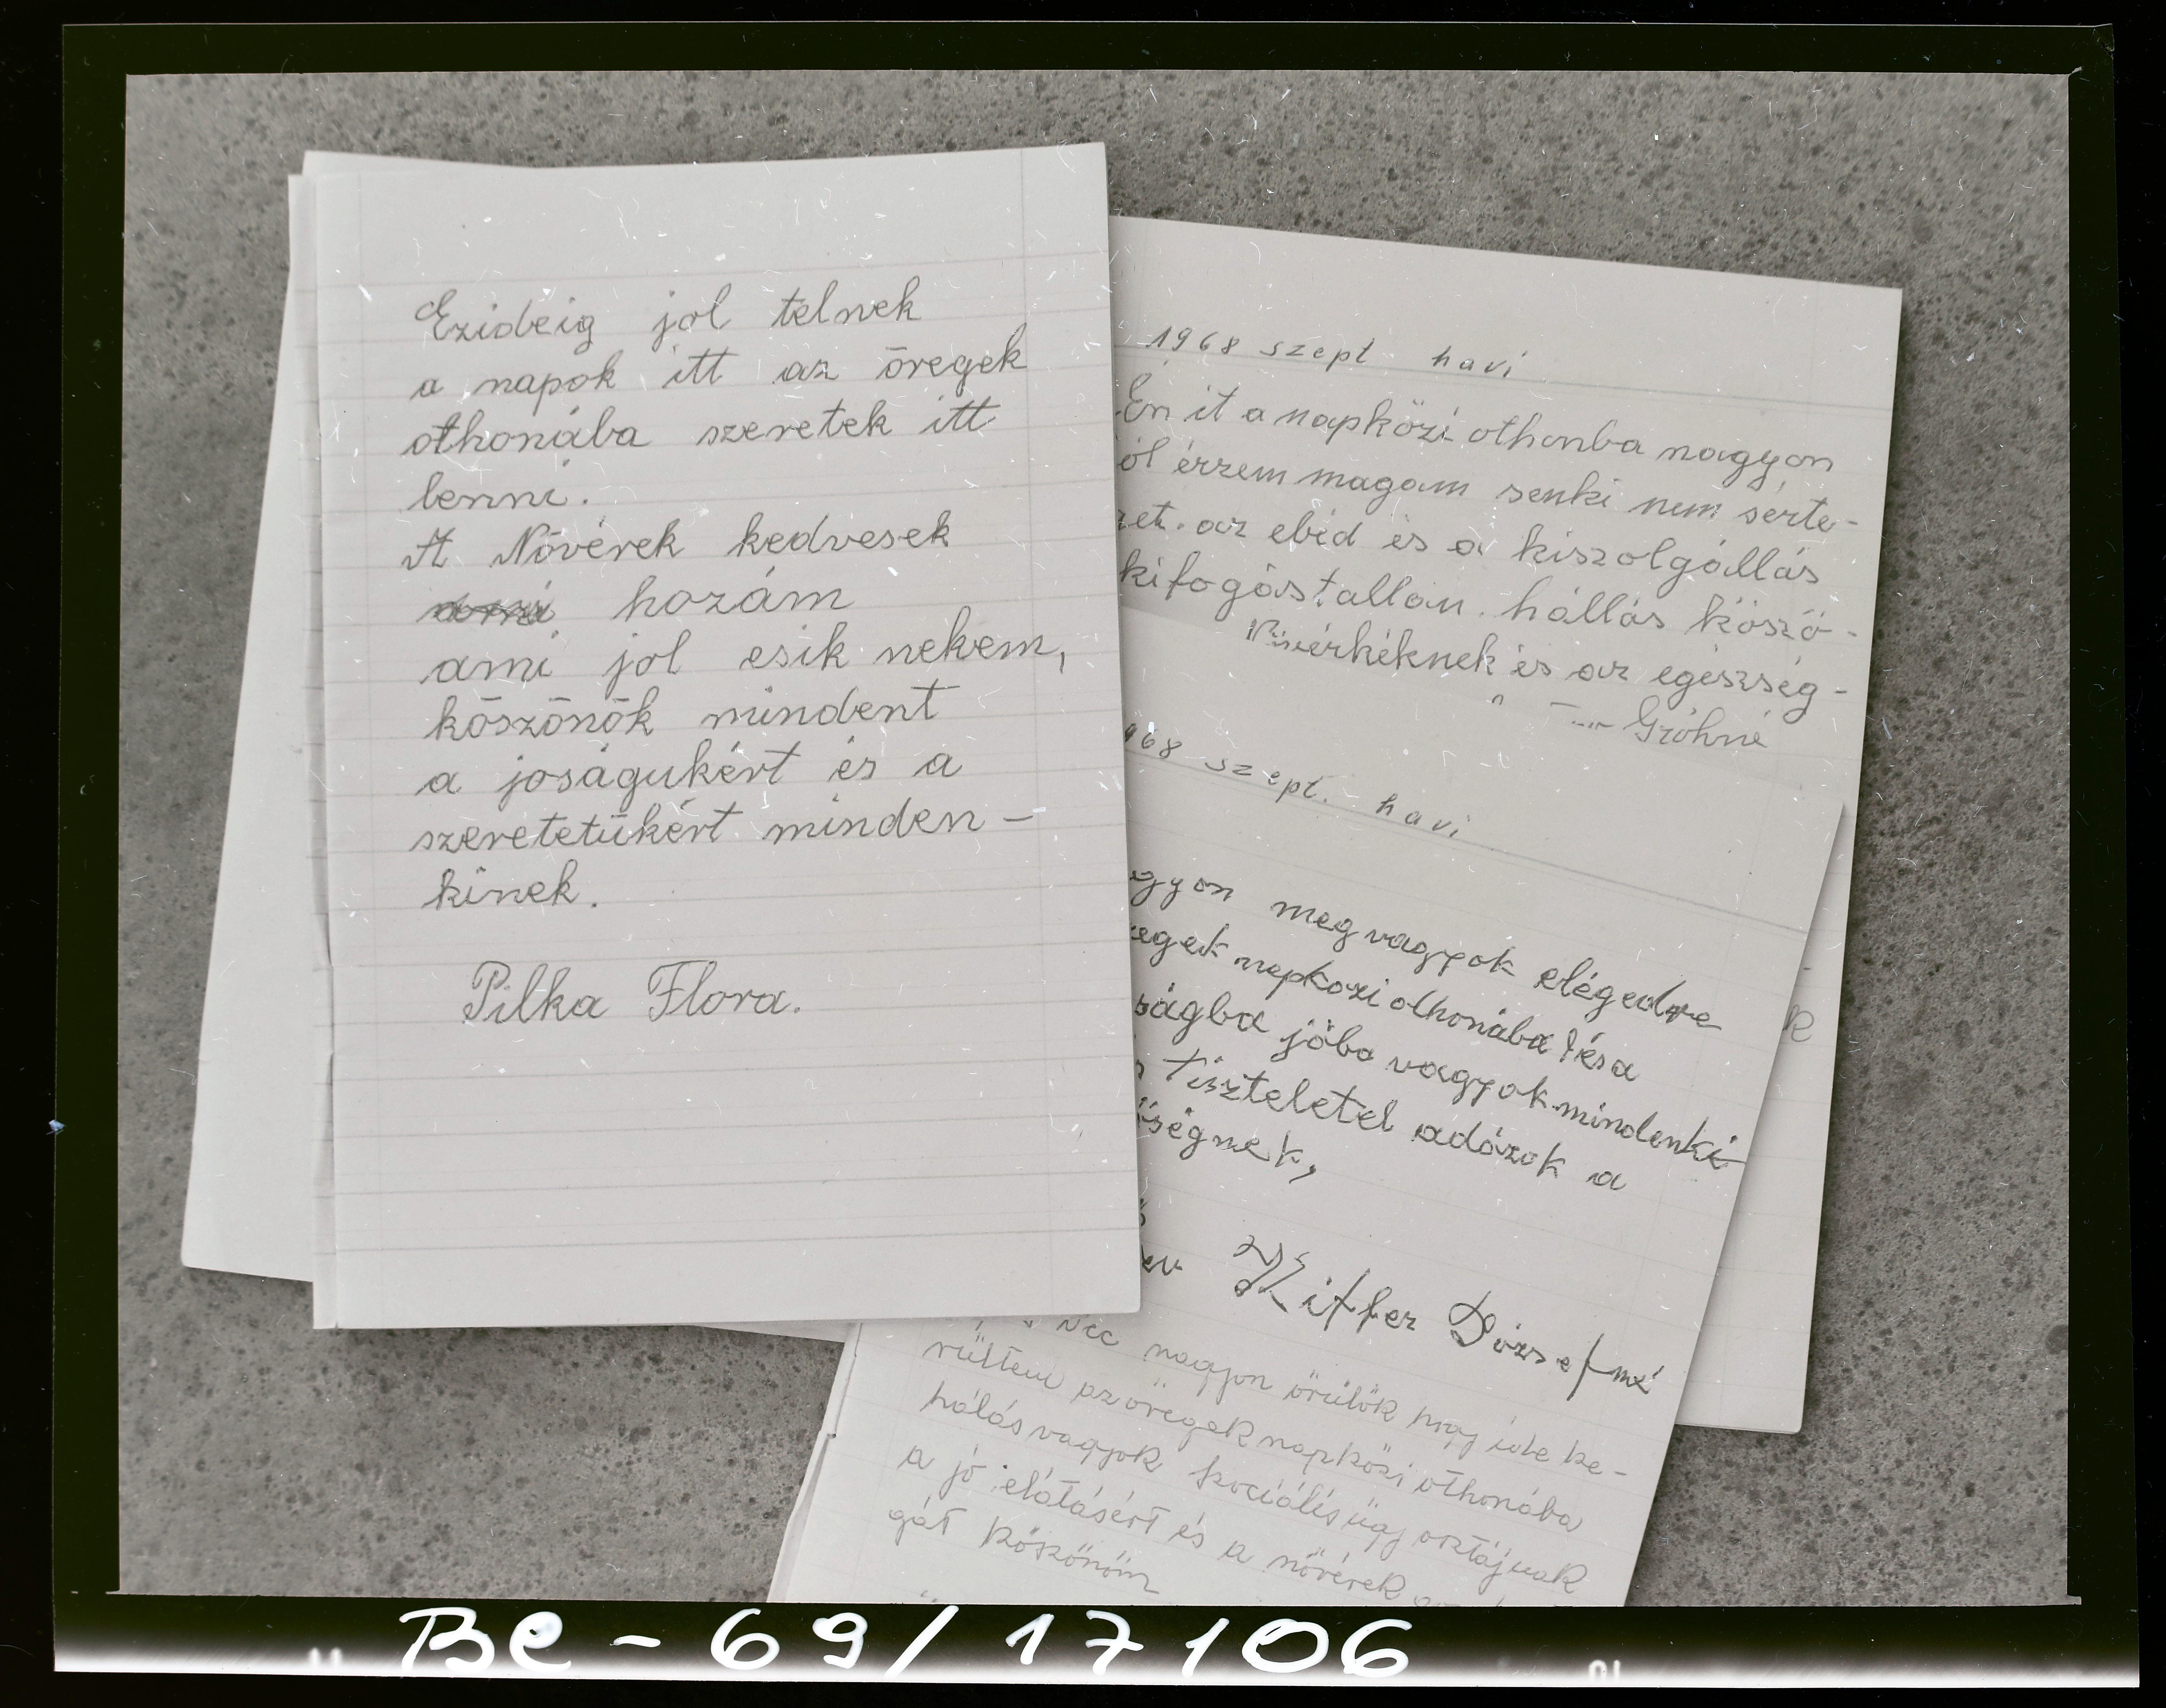 Ezideig jol telnek
a napok itt az öregek
othonába szeretek itt
lenni.
A Növérek kedvesek
hozám
ami jol esik nekem,
köszönök mindent
a joságukért és a
szeretetükért minden-
kinek.
Pilka Flora.
1968 szept. havi
Én it a napközi othonba nagyon
ól érzem magam senki nem sérte-
zet. az ebéd és a kiszolgállás
kifogástallan. hállás köszö-
növérkéknek és az egészség-
Gróhné
968 szept. havi
gyon meg vagyok elégedve
regek napkozi othonába
ságba jóba vagyok mindenki
tisztelettel adózok a
iségnek,
Kiffer Józsefné
nagyon örülök hogy ide ke-
rültem az öregek napközi othonába
hálás vagyok szociális ügy osztájnak
a jó elátásért és a növérek
gát köszönöm
BE-69/17106